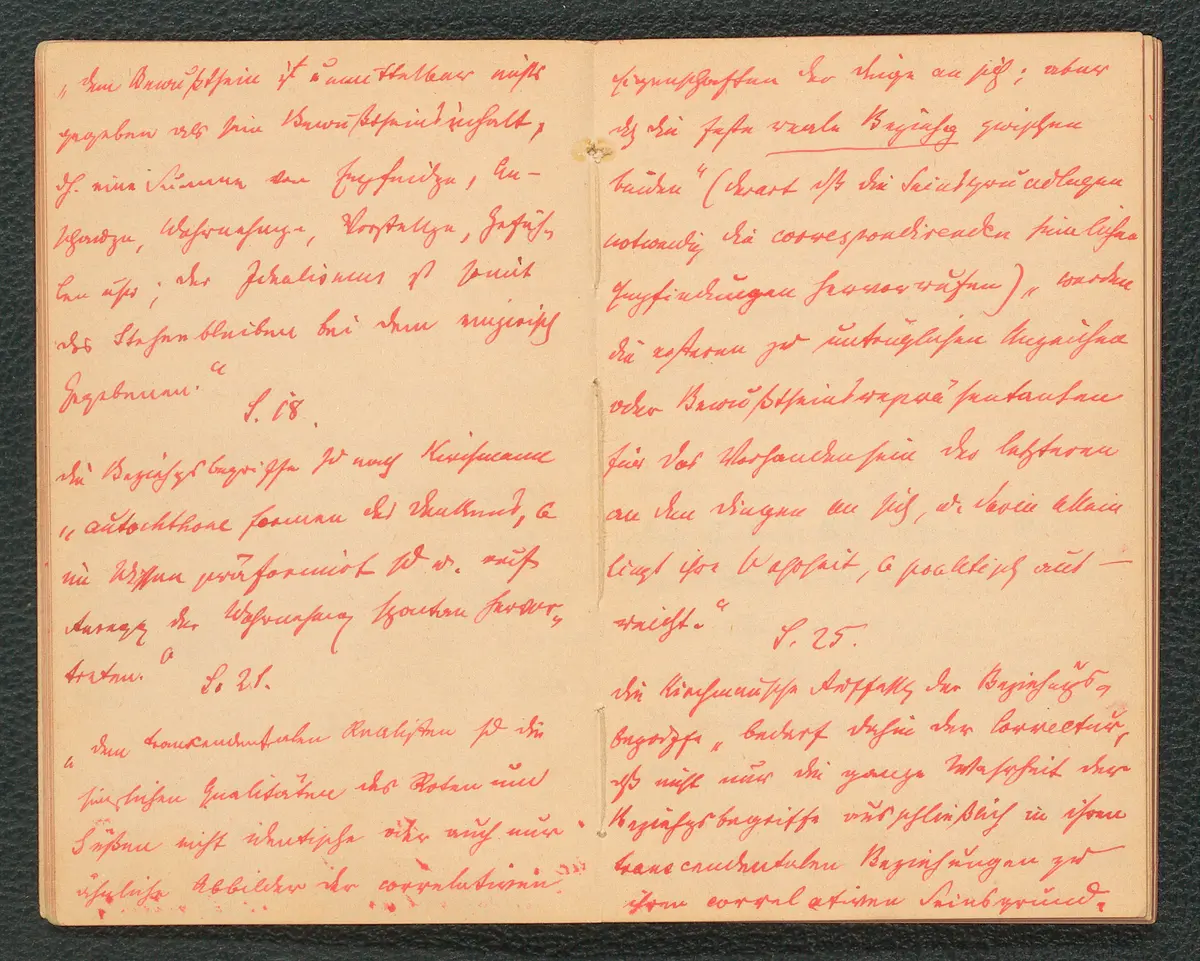 „dem Bewußtsein ist unmittelbar nichts
gegeben als sein Bewußtseinsinhalt,
dh. eine Summe von Empfindgn, An-
schaugn, Wahrnehmgn, Vorstellgn, Gefüh-
len usw; der Idealismus ist somit
das Stehenbleiben bei dem empirisch
Gegebenen.“
S. 18.
die Beziehgsbegriffe sd nach Kirchmann
„autochthone Formen des Denkens, d
im Wissen präformirt sd u. auf
Anregg der Wahrnehmg spontan hervor-
treten.“
S. 21.
„dem transcendentalen Realisten sd die
sinnlichen Qualitäten des Roten und
Süßen nicht identische oder auch nur
ähnliche Abbilder der correlativen
Eigenschaften der Dinge an sich; aber
dch die feste reale Beziehg zwischen
beiden“ (derart dß die Seinsgrundlagen
notwendig die correspondirenden sinnlichen
Empfindungen hervorrufen) „werden
die ersteren zu untrüglichen Anzeichen
oder Bewußtseinsrepräsentanten
für das Vorhandensein der letzteren
an den Dingen an sich, u. darin allein
liegt ihre Wahrheit, d praktisch aus-
reicht.“
S. 25.
die Kirchmannsche Auffassg der Beziehungs-
begriffe „bedarf dahin der Correctur,
dß nicht nur die ganze Wahrheit der
Beziehgsbegriffe ausschließlich in ihren
transcendentalen Beziehungen zu
ihren correlativen Seinsgrund-